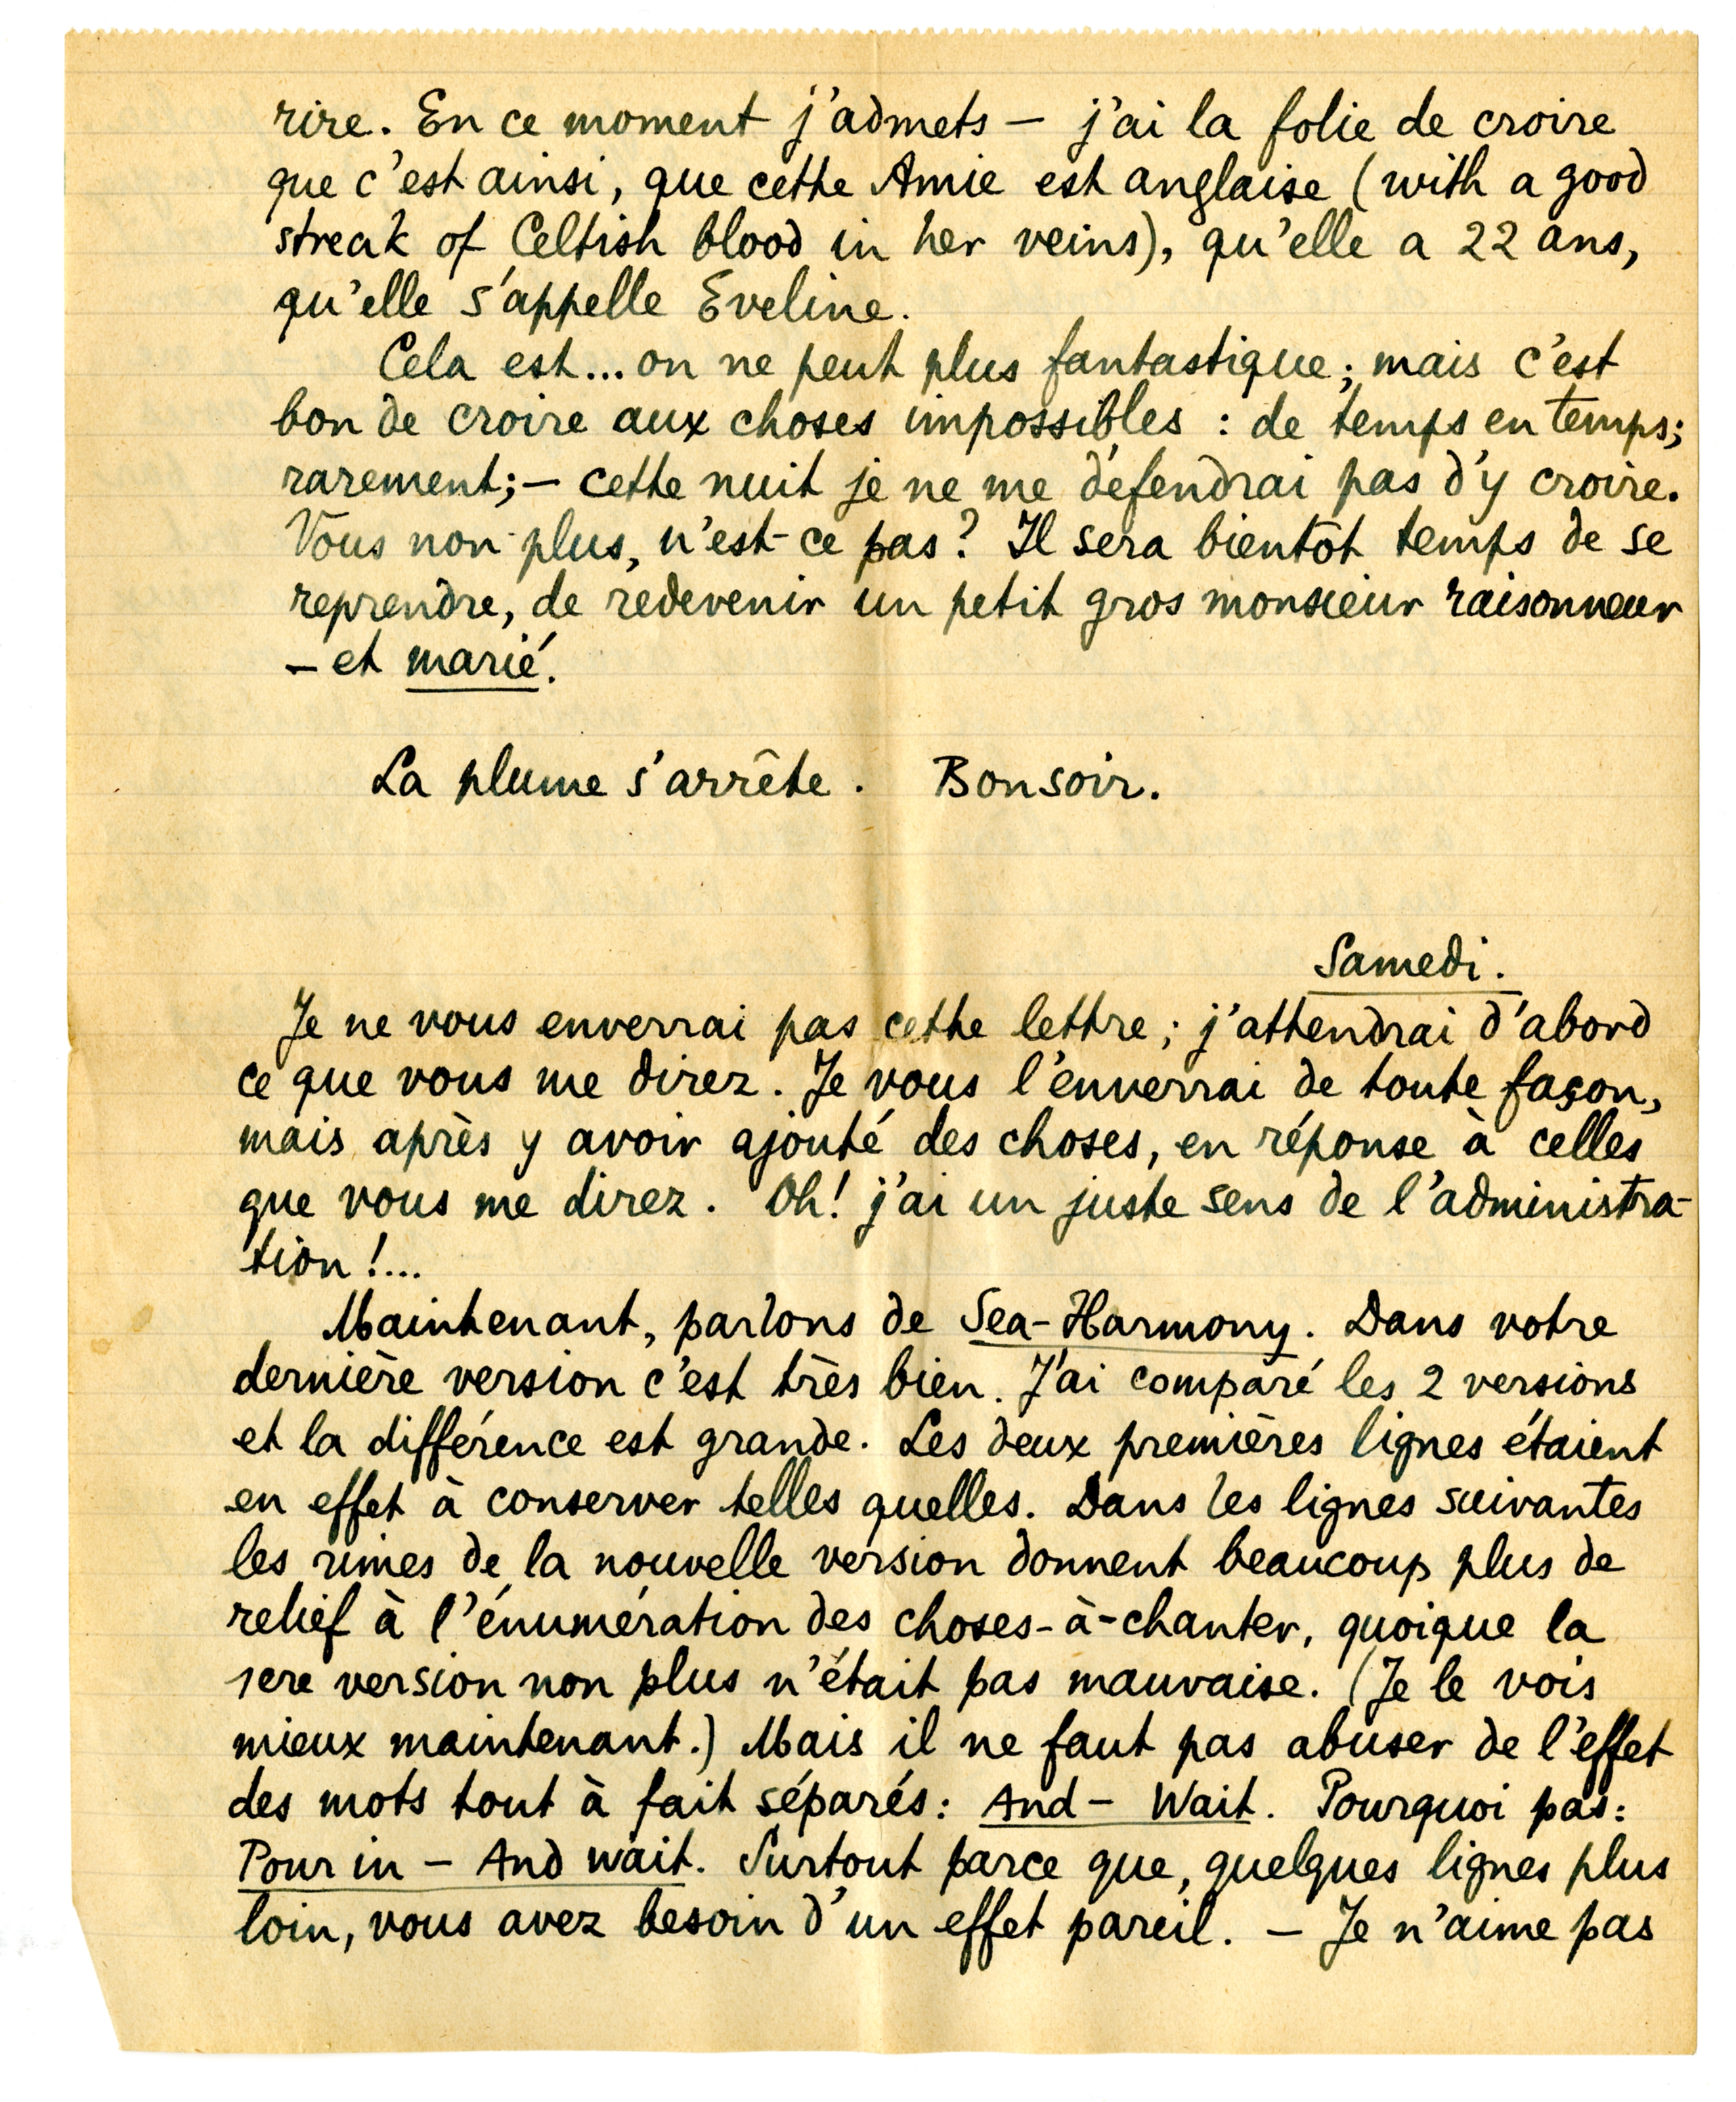 rire. En ce moment j'admets — j'ai la folie de croire
que c'est ainsi, que cette Amie est anglaise (with a good
streak of Celtish blood in her veins), qu'elle a 22 ans,
qu'elle s'appelle Eveline.
Cela est... on ne peut plus fantastique; mais c'est
bon de croire aux choses impossibles : de temps en temps;
rarement; — cette nuit je ne me défendrai pas d'y croire.
Vous non plus, n'est-ce pas? Il sera bientôt temps de se
reprendre, de redevenir un petit gros monsieur raisonneur
— et marié.
La plume s'arrête. Bonsoir.
Samedi.
Je ne vous enverrai pas cette lettre; j'attendrai d'abord
ce que vous me direz. Je vous l'enverrai de toute façon,
mais après y avoir ajouté des choses, en réponse à celles
que vous me direz. Oh! j'ai un juste sens de l'administra-
tion!...
Maintenant, parlons de Sea-Harmony. Dans votre
dernière version c'est très bien. J'ai comparé les 2 versions
et la différence est grande. Les deux premières lignes étaient
en effet à conserver telles quelles. Dans les lignes suivantes
les rimes de la nouvelle version donnent beaucoup plus de
relief à l'énumération des choses-à-chanter, quoique la
1ere version non plus n'était pas mauvaise. (Je le vois
mieux maintenant.) Mais il ne faut pas abuser de l'effet
des mots tout à fait séparés: And — Wait. Pourquoi pas:
Pour in — And wait. Surtout parce que, quelques lignes plus
loin, vous avez besoin d'un effet pareil. — Je n'aime pas